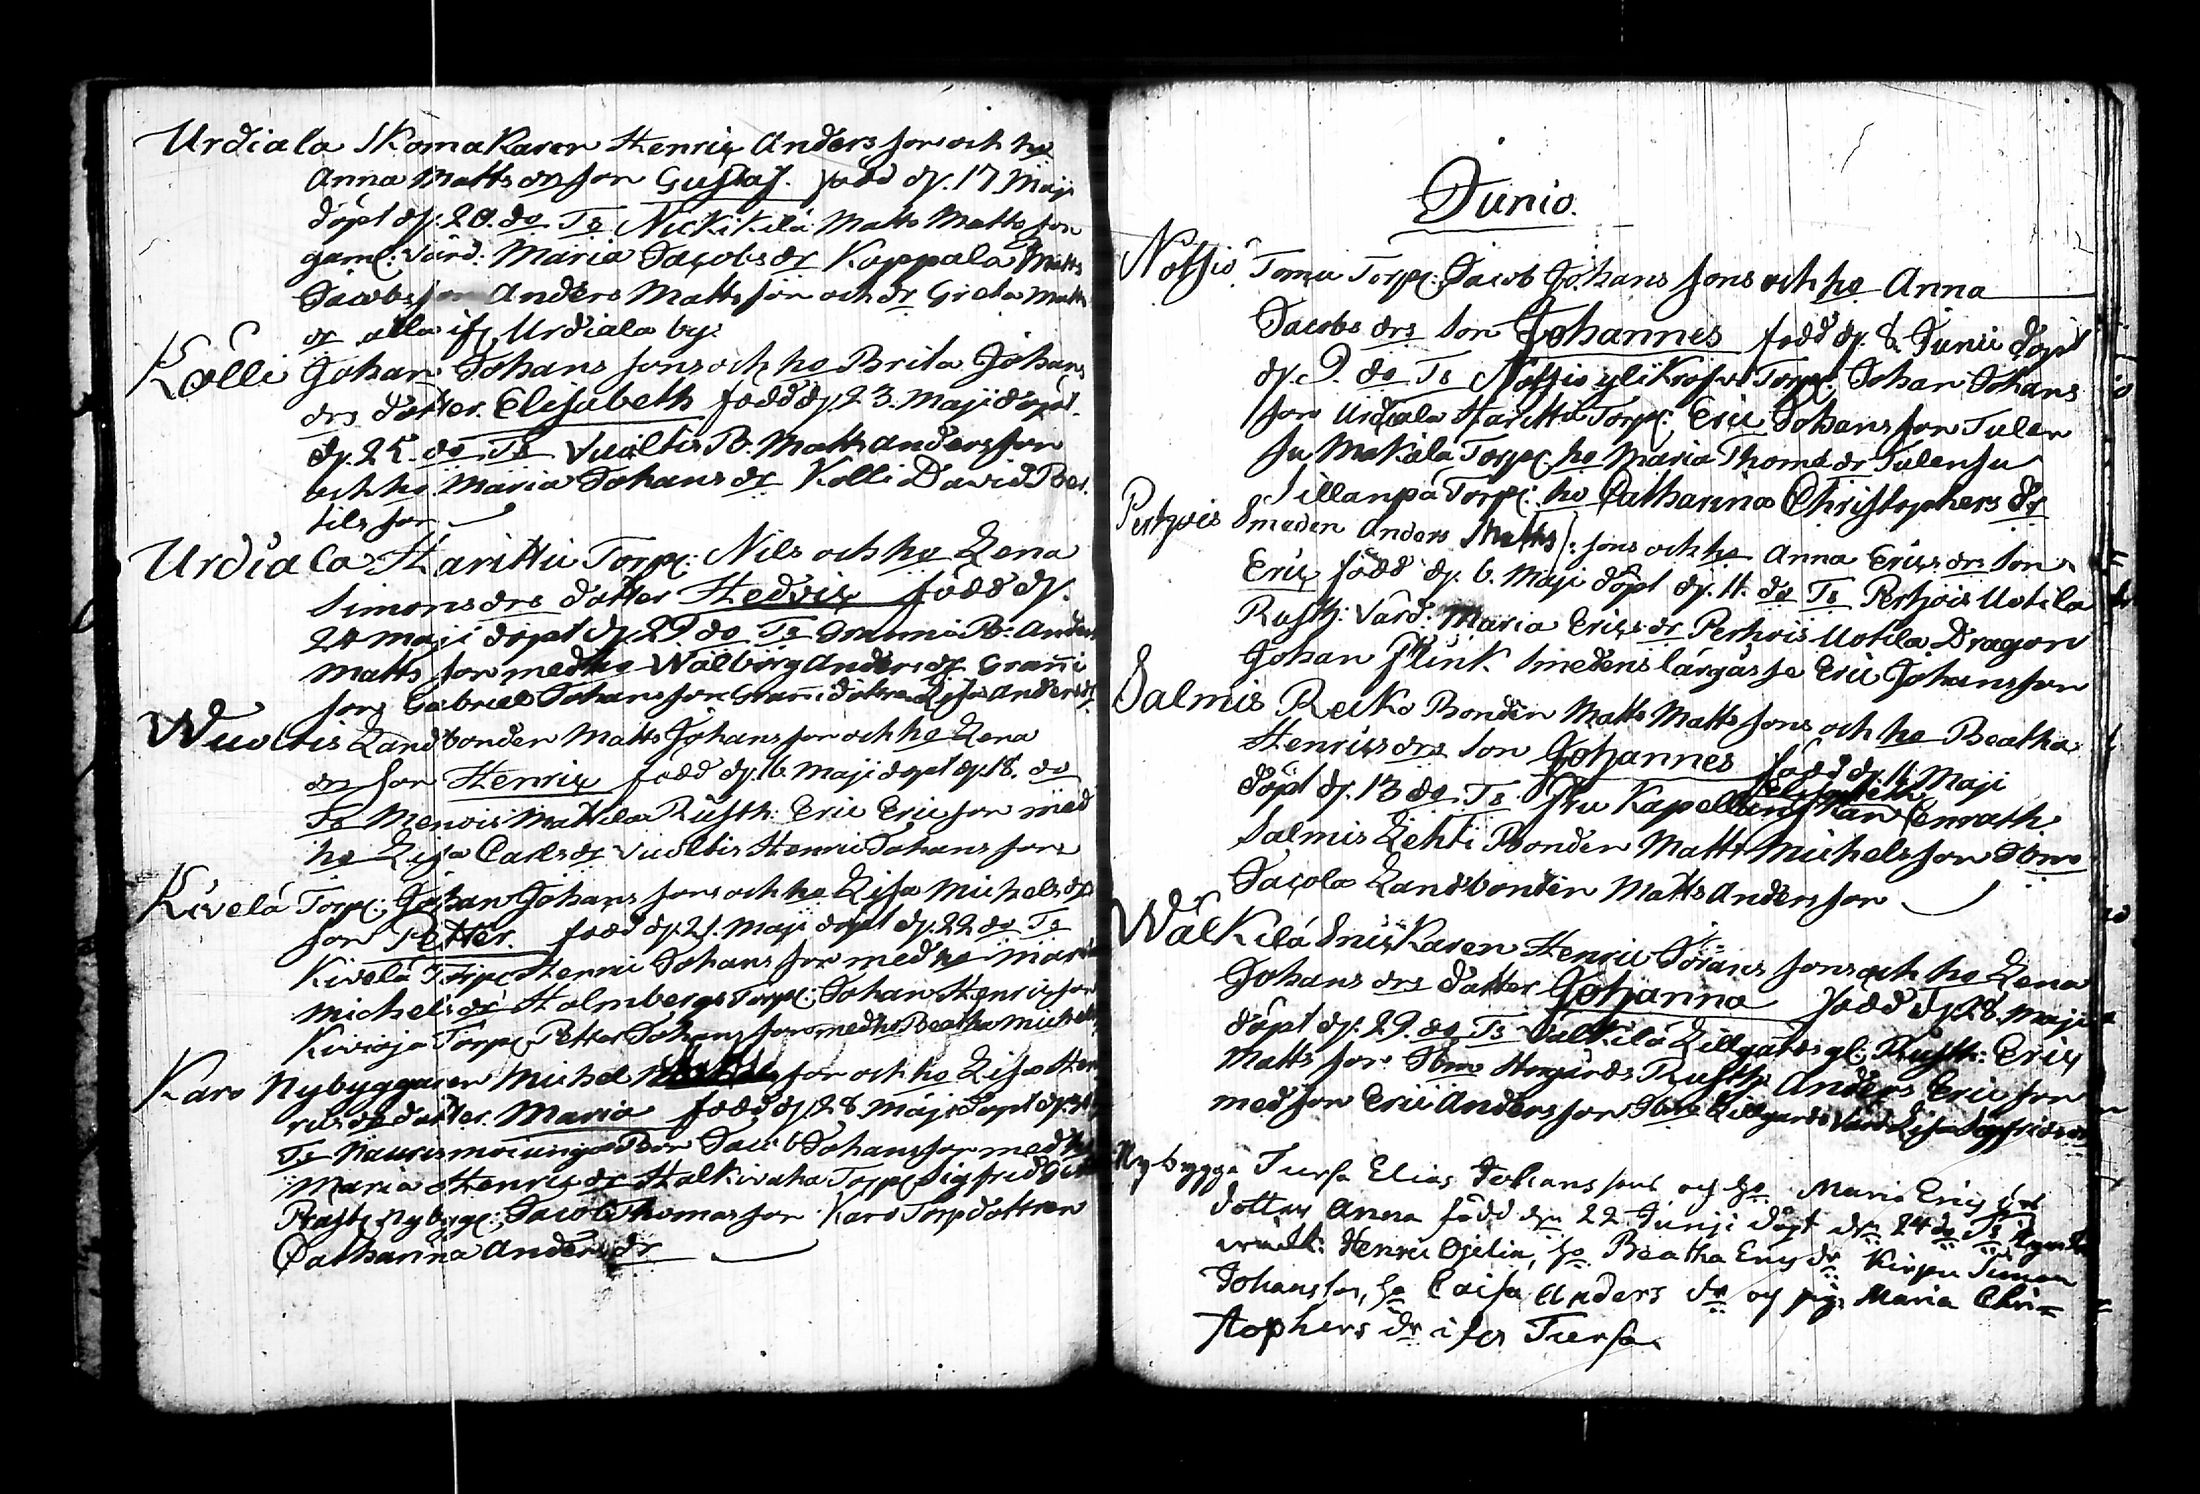 Urdiala Skomakaren Henric Anders son och ho
Anna Matts drs son Gustaf. född d. 17 Maji
döpt d. 20. do Ts Nickikilä Matts Matts son
gaml: Värd: Maria Jacobs dr Koppala Matts
Jacobs son Anders Matts son och dr Greta Matts
dr alla if. Urdiala by.
Kolli Johan Johans sons och ho Brita Johans
drs dotter. Elisabeth född d. 23. Maji döpt.
d. 25. do Ts Vuoltis B. Matts Anders son
och ho Maria Johans dr Kolli David Ber.
tils son
Urdiala Harittu Torp: Nils och ho Lena
Simons drs dotter Hedvig född d.
24 Maji döpt d. 29 do Ts Granni B. Anders
Matts son med ho Walborg Anders dr Granni
son Gabriel Johans son Granni dottren Lisa Anders dr.
Wuoltis Landbonden Matts Johans son och ho Lena
drs son Henric född d. 6. Maji döpt d. 18. do
Ts Menois Mattila Rusth: Eric Eric son med
ho Lisa Carls dr Vuoltis Henric Johans son
Kivelä Torp: Johan Johans sons och ho Lisa Michels drs
son Petter. född d. 21. Maji döpt d. 22 do Ts
Kivelä Torp: Henric Johans son med ho Maria
Michels dr Holmbergs Torp: Johan Henric son
Kivioja Torp: Petter Johans son med ho Beatha Michels
Karo Nybyggaren Michel son och ho Lisa Hen
rics dr dotter. Maria född d. 28 Maji döpt d.
Ts Jacob Johans son med ho
Maria Henrics dr Halkivaha Torp: Sigfrid
Nybygg: Jacob Thomas son Karo Torp dottren
Catharina Anders dr
Junio.
Notsjö Torp: Jacob Johans sons och ho Anna
Jacobs drs son Johannes född d. 8. Junii döpt
d. 9. do Ts Notsjö Torp: Johan Johans
son Urdiala Harittu Torp: Eric Johans son Tulen
su Makälä Torp: ho Maria Thoms dr Tulensu
Sillanpä Torp: ho Catharina Christophers dr
Pertzois Smeden Anders Matts sons och ho Anna Erics drs son
Eric född d. 6. Maji döpt d. 11. do Ts Pertzois Uotila
Rusth: Värd: Maria Erics dr Pertzois Uotila Dragon
Johan Flink Smedens lärgåsse Eric Johans son
Salmis Reko Bonden Matts Matts sons och ho Beatha
Henrics drs son Johannes född d. 11. Maji
döpt d. 13 do Ts Fru Kapellanskan Elisabeth Cenrath.
Salmis Lehti Bonden Matts Michels son Ibm
Jacola Landbonden Matts Anders son
Walkilä Snickaren Henric Görans sons och ho Lena
Johans drs dotter Johanna född d. 28. Maji
döpt d. 29. do Ts Valkilä Lillgårds gl: Rusth: Eric
Matts son Ibm Storgårds Rusth: Anders Eric son
med son Eric Anders son Ibm Lillgårds Värd Lisa Sigfrids dr
Nybygg: Tursa Elias Johans sons og ho Maria Erics drs
dotter Anna född den 22 Junji döpt den 24 do Ts
Henric ho Beatha Erics dr Kirpu Simon
Johans son, ho Caisa Anders dr og pig: Maria Chri=
stophers dr ifrå Tursa